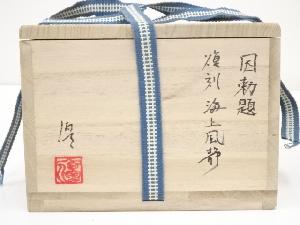 因勅題
復刻 海上風静